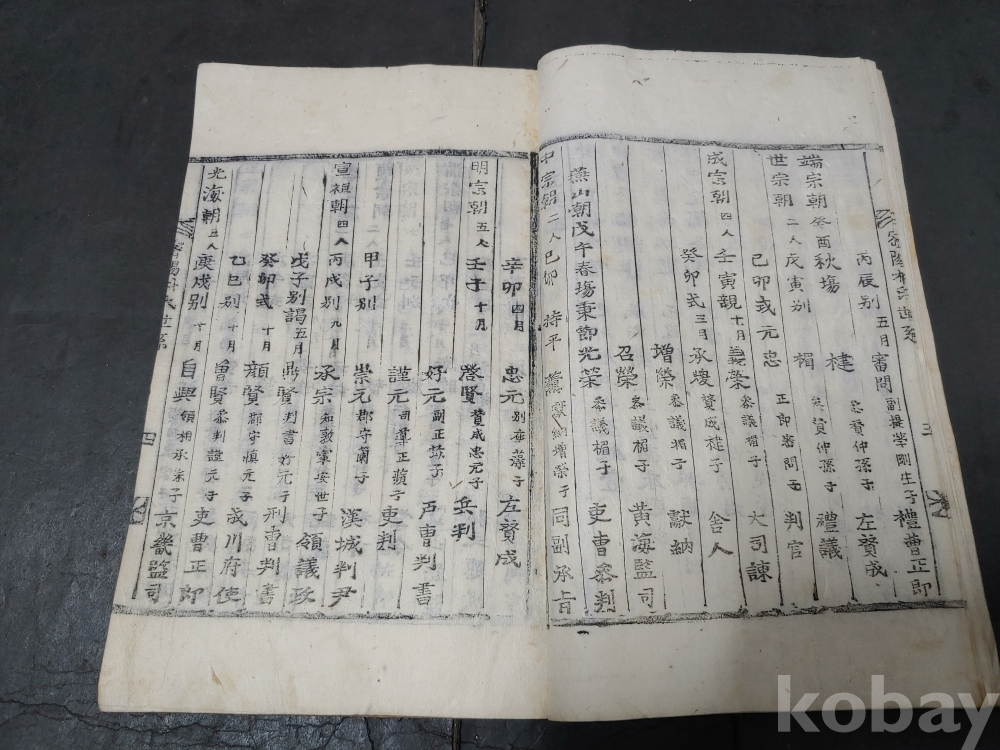 丙辰別 五月 審問 副提學剛生子 禮曹正郎
端宗朝 癸酉秋場 楗 參贊仲孫子 左贊成
世宗朝 二人 戊寅別 楣 參贊仲孫子 禮議
己卯式 元忠 正郎審問子 判官
成宗朝 四人 壬寅親 十月 義榮 參議楣子 大司諫
癸卯式 三月 承煥 贊成楗子 舍人
增榮 參議楣子 獻納
召榮 參議楣子 黃海監司
燕山朝 戊午春場 秉節 光榮 參議楣子 吏曹參判
中宗朝 二人 己卯 持平 薰 獻納增榮子 同副承旨
三
辛卯 四月 忠元 別座藻子 左贊成
明宗朝 五人 壬子 十月 啓賢 贊成忠元子 兵判
好元 副正蓀子 戶曹判書
謹元 司導正蘋子 吏判
甲子別 崇元 郡守蘭子 漢城判尹
宣祖朝 四人 丙戌別 九月 承宗 知敦寧安世子 領議政
戊子別謁 五月 鼎賢 判書好元子 刑曹判書
癸卯式 十月 顔賢 郡守慎元子 成川府使
乙巳別 十月 魯賢 參判謹元子 吏曹正郎
光海朝 三人 庚戌別 十月 自興 領相承宗子 京畿監司
密陽朴氏世系
四
kobay